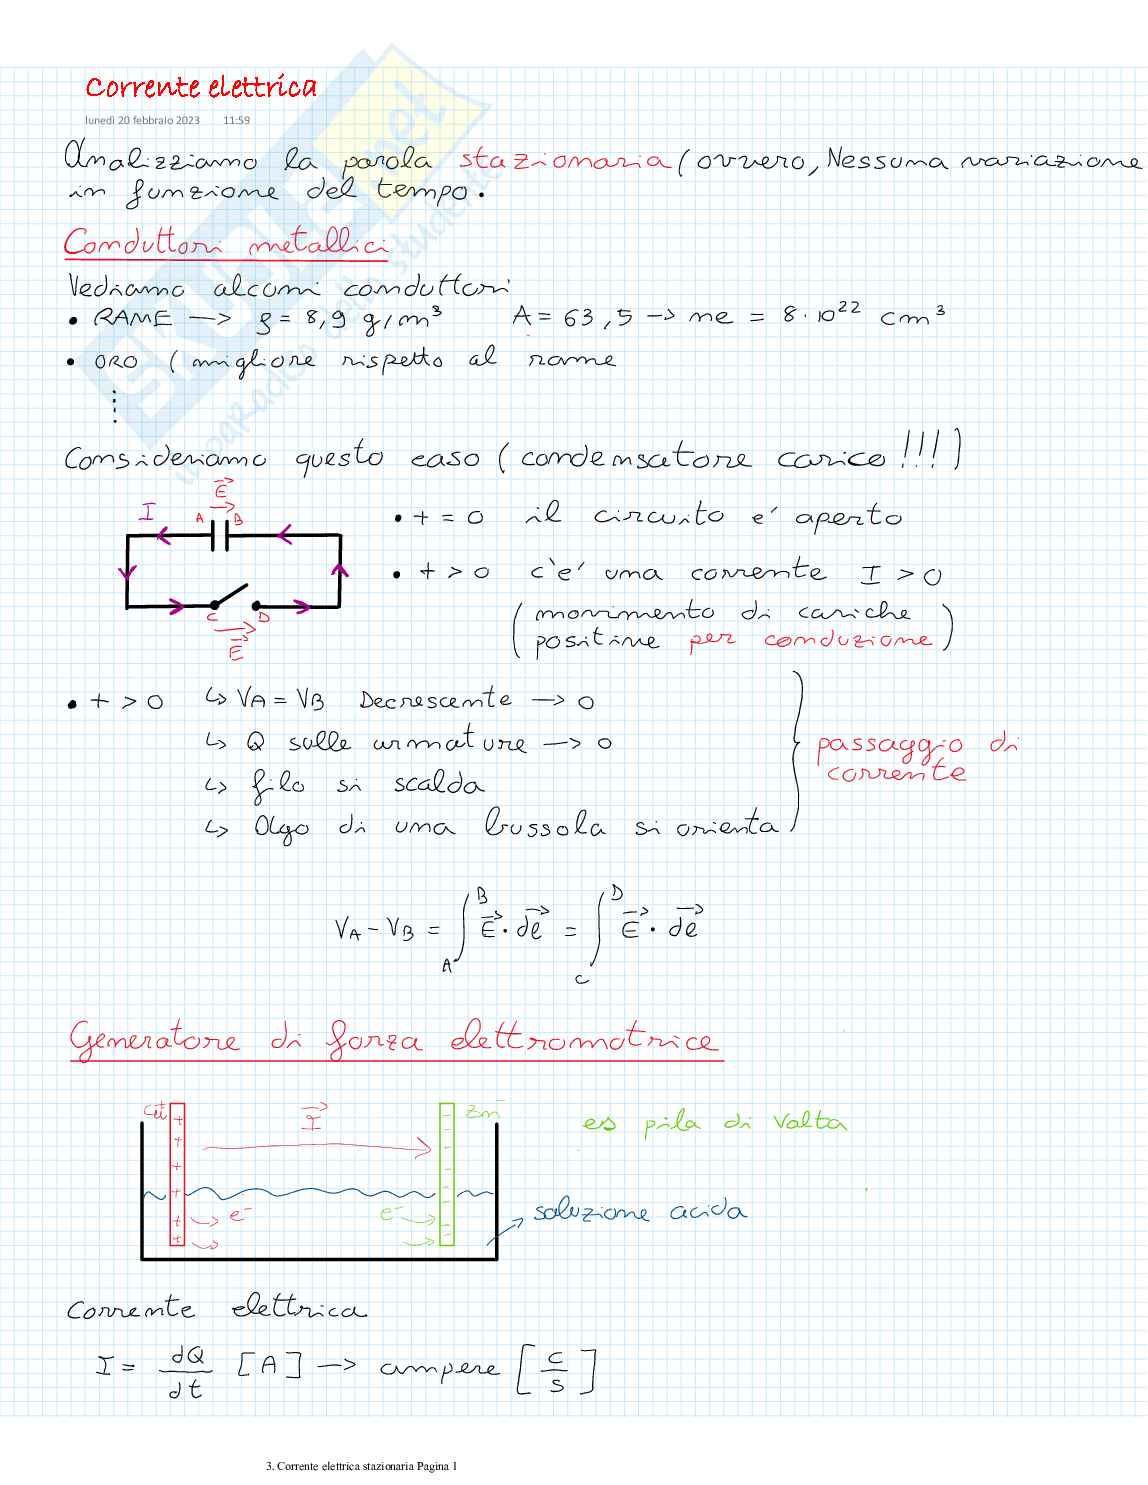 Corrente elettrica
lunedì 20 febbraio 2023 11:59
Analizziamo la parola stazionaria (ovvero, Nessuna variazione
in funzione del tempo.
Conduttori metallici
Vediamo alcuni conduttori
• RAME → ρ = 8,9 g/m³ A = 63,5 → ne = 8·10²² cm³
• ORO (migliore rispetto al rame
⋮
Consideriamo questo caso (condensatore carico!!!)
E⃗
I A B
• t = 0 il circuito e' aperto
• t > 0 c'e' una corrente I > 0
(movimento di cariche
positive per conduzione)
C D
E⃗
• t > 0 ↳ VA = VB Decrescente → 0
↳ Q sulle armature → 0
↳ filo si scalda
↳ Olgo di una bussola si orienta
passaggio di
corrente
VA - VB = ∫_A^B E⃗ · de⃗ = ∫_C^D E⃗ · de⃗
Generatore di forza elettromotrice
Cu⁺ I⃗ Zn⁻
es pila di Valta
e⁻ e⁻
soluzione acida
Corrente elettrica
I = dQ/dt [A] → ampere [C/S]
3. Corrente elettrica stazionaria Pagina 1
SKUOLA.net